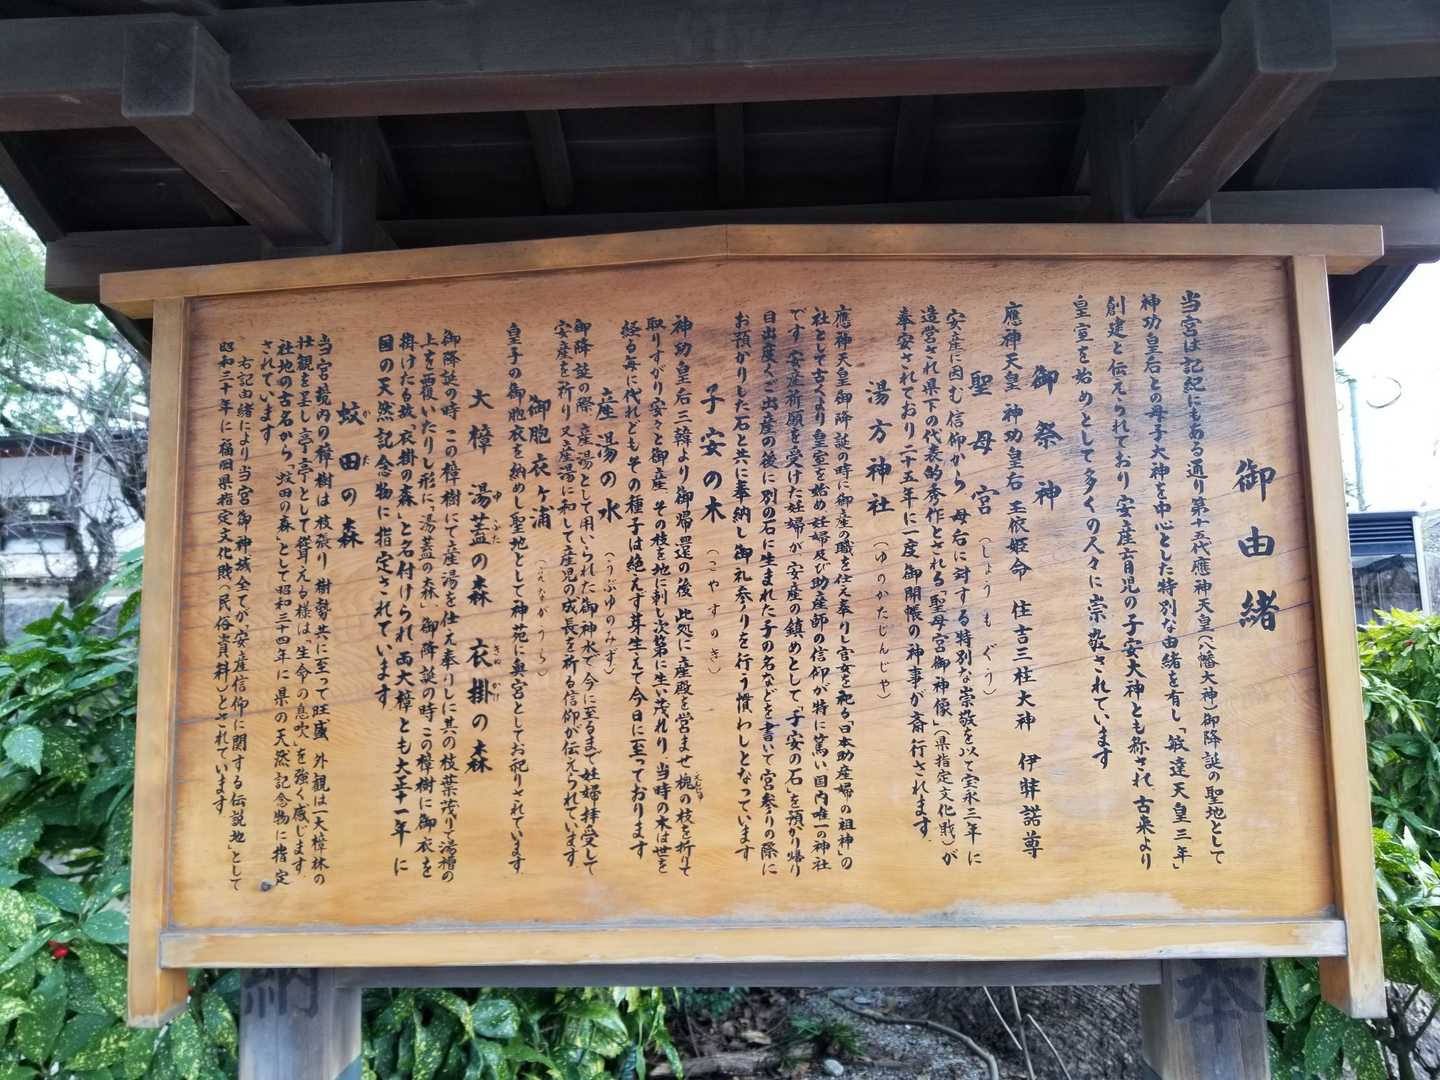 御由緒
当宮は記紀にもある通り第十五代應神天皇(八幡大神)御降誕の聖地として
神功皇后との母子大神を中心とした特別な由緒を有し「敏達天皇三年」
創建と伝えられており 安産育児の子安大神とも称され、古来より
皇室を始めとして多くの人々に崇敬されています
御祭神
應神天皇 神功皇后 玉依姫命 住吉三柱大神 伊弉諾尊
聖母宮(しょうもぐう)
安産に因む信仰から 母后に対する特別な崇敬を以て宝永三年に
造営され県下の代表的秀作とされる「聖母宮御神像」(県指定文化財)が
奉安されており二十五年に一度御開帳の神事が斎行されます
湯方神社(ゆのかたじんじゃ)
應神天皇御降誕の時に御産の職を仕え奉りし官女を祀る「日本助産婦の祖神」の
社として古くより皇室を始め妊婦及び助産師の信仰が特に篤い国内唯一の神社
です 安産祈願を受けた妊婦が安産の鎮めとして「子安の石」を預かり帰り
目出度くご出産の後に別の石に生まれた子の名などを書いて宮参りの際に
お預かりした石と共に奉納し御礼参りを行う慣わしとなっています
子安の木(こやすのき)
神功皇后三韓より御帰還の後 此処に産殿を営ませ槐の枝を折りて
取りすがり安々と御産 その枝を地に刺し次第に生い茂れり 当時の木は世を
経る毎に代れどもその種子は絶えず芽生えて今日に至っております
産湯の水(うぶゆのみず)
御降誕の際 産湯として用いられた御神水で今に至るまで妊婦拝受して
安産を祈り又産湯に和して産児の成長を祈る信仰が伝えられています
御胞衣ヶ浦(えながうら)
皇子の御胞衣を納めし聖地として神苑に奥宮としてお祀りされています
大樟 湯蓋の森 衣掛の森
御降誕の時 この樟樹にて産湯を仕え奉りしに其の枝葉茂りて湯槽の
上を覆いたりし形に「湯蓋の森」御降誕の時この樟樹に御衣を
掛けたる故「衣掛の森」と名付けられ両大樟とも大正十一年に
国の天然記念物に指定されています
蚊田の森
当宮境内の樟樹は 枝張り 樹勢共に至って旺盛 外観は一大樟林の
壮観を呈し亭亭として聳える様は「生命の息吹」を強く感じます
社地の古名から「蚊田の森」として昭和三十四年に県の天然記念物に指定
されています
右記由緒により当宮御神域全てが「安産信仰に関する伝説地」として
昭和三十年に福岡県指定文化財(民俗資料)とされています
奉
納